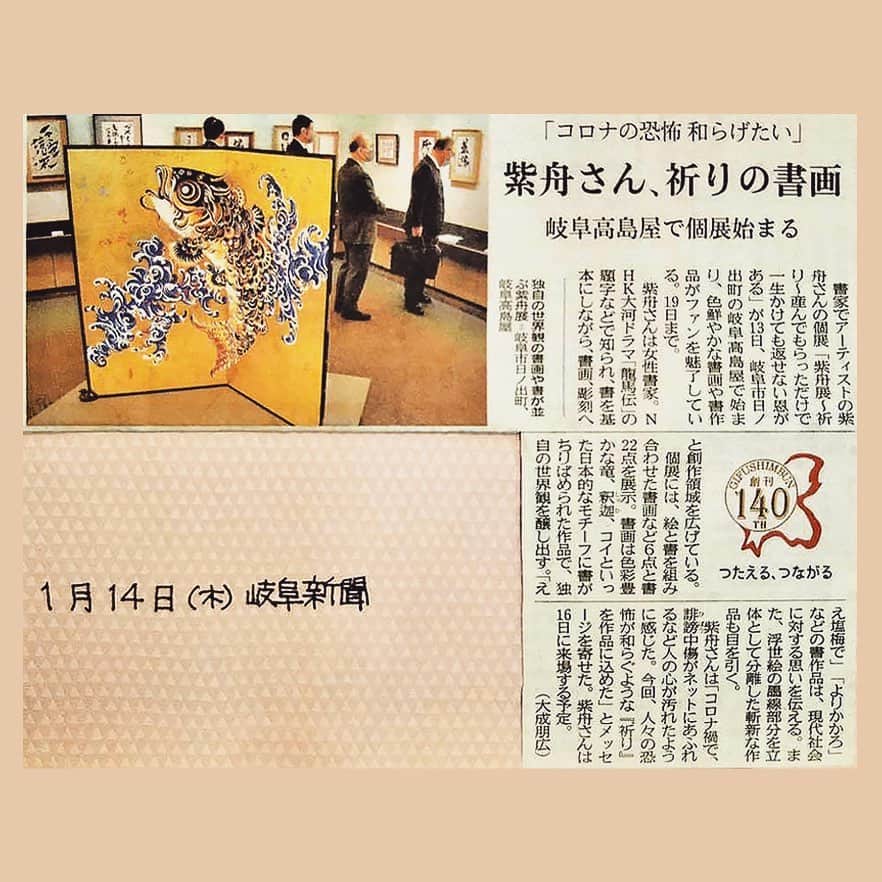 「コロナの恐怖 和らげたい」
紫舟さん、祈りの書画
岐阜高島屋で個展始まる
書家でアーティストの紫
舟さんの個展「紫舟展～祈
り～産んでもらっただけで
一生かけても返せない恩が
ある」が13日、岐阜市日ノ
出町の岐阜高島屋で始ま
り、色鮮やかな書画や書作
品がファンを魅了してい
る。19日まで。
紫舟さんは女性書家。N
HK大河ドラマ「龍馬伝」の
題字などで知られ、書を基
本にしながら、書画、彫刻へ
独自の世界観の書画や書が並
ぶ紫舟展＝岐阜市日ノ出町、
岐阜高島屋
と創作領域を広げている。
個展には、絵と書を組み
合わせた書画など6点と書
22点を展示。書画は色彩豊
かな竜、釈迦、コイといっ
た日本的なモチーフに書が
ちりばめられた作品で、独
自の世界観を醸し出す。「え
GIFUSHIMBUN
創刊
140
TH
つたえる、つながる
え塩梅で」「よりかかろ」
などの書作品は、現代社会
に対する思いを伝える。ま
た、浮世絵の墨線部分を立
体として分離した斬新な作
品も目を引く。
紫舟さんは「コロナ禍で、
誹謗中傷がネットにあふれ
るなど人の心が汚れたよう
に感じた。今回、人々の恐
怖が和らぐような『祈り』
を作品に込めた」とメッセ
ージを寄せた。紫舟さんは
16日に来場する予定。
（大成朋広）
1月14日(木) 岐阜新聞